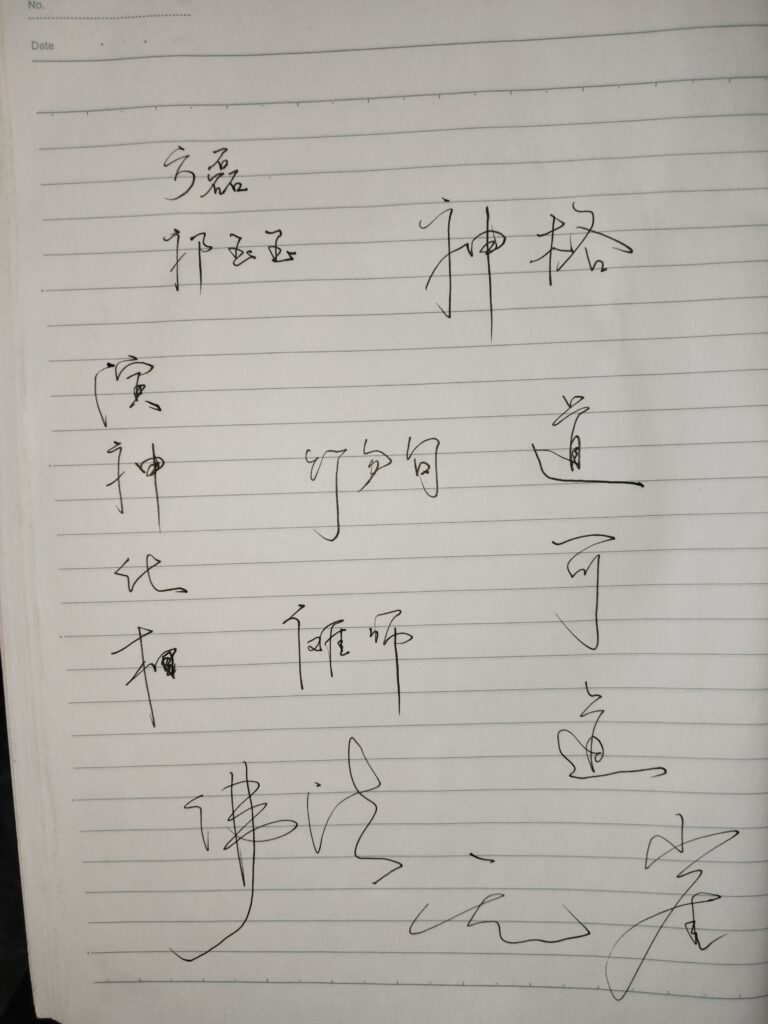 No.
Date
方磊
祁玉玉
神格
演
神
化
相
道
可
道
傩师
佛法
无崖